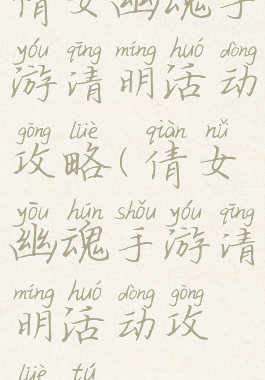 倩女幽魂手
yóu qīng míng huó dòng
游清明活动
gōng lüè qiàn nǚ
攻略(倩女
yōu hún shǒu yóu qīng
幽魂手游清
míng huó dòng gōng
明活动攻
lüè tú